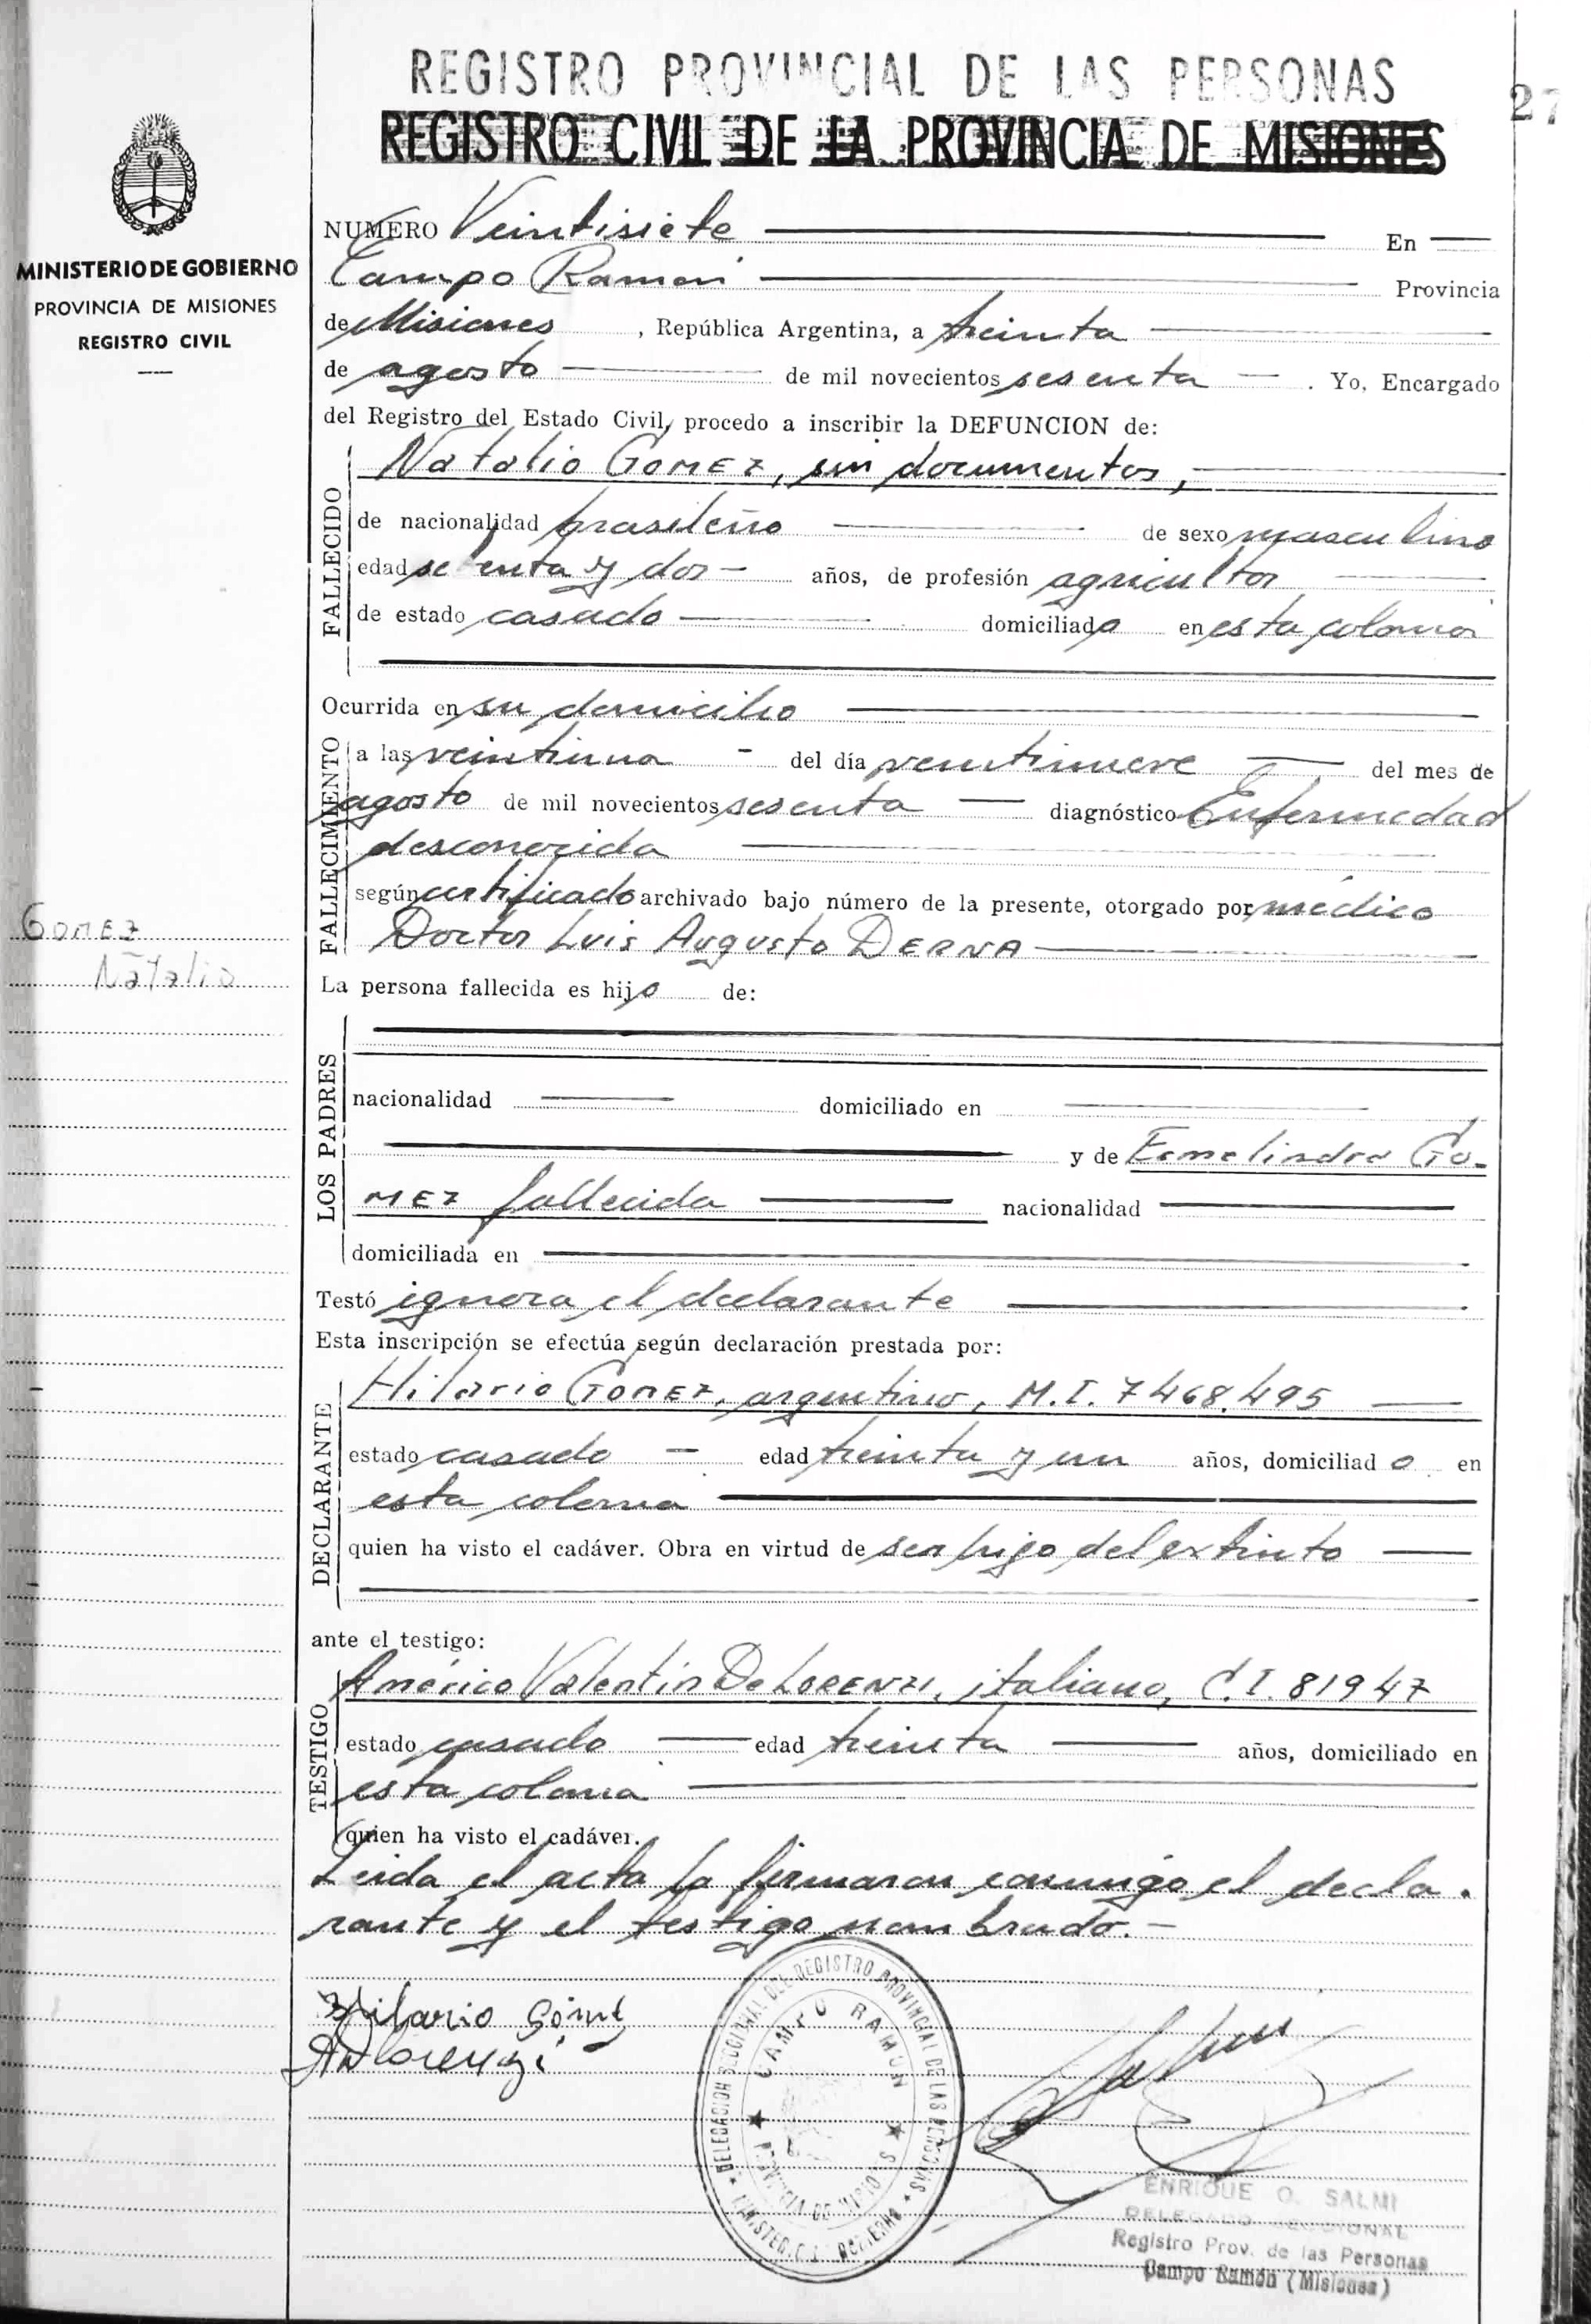 REGISTRO PROVINCIAL DE LAS PERSONAS
27
REGISTRO CIVIL DE LA PROVINCIA DE MISIONES
MINISTERIO DE GOBIERNO
PROVINCIA DE MISIONES
REGISTRO CIVIL
NUMERO Veintisiete En
Campo Ramón Provincia
de Misiones, República Argentina, a treinta
de agosto de mil novecientos sesenta. Yo, Encargado
del Registro del Estado Civil, procedo a inscribir la DEFUNCION de:
FALLECIDO
Natalio GOMEZ, sin documentos,
de nacionalidad brasileño de sexo masculino
edad y dos años, de profesión agricultor
de estado casado domiciliado en esta colonia
Ocurrida en su domicilio
FALLECIMIENTO
a las veintiuna del día veintinueve del mes de
agosto de mil novecientos sesenta diagnóstico Enfermedad
desconocida
según certificado archivado bajo número de la presente, otorgado por médico
Doctor Luis Augusto DERNA
GOMEZ
Natalio
La persona fallecida es hijo de:
LOS PADRES
nacionalidad domiciliado en
y de Ermelindra GO-
MEZ fallecida nacionalidad
domiciliada en
Testó ignora el declarante
Esta inscripción se efectúa según declaración prestada por:
DECLARANTE
Hilario GOMEZ, argentino, M.I. 7468.495
estado casado edad treinta y un años, domiciliado en
esta colonia
quien ha visto el cadáver. Obra en virtud de ser hijo del extinto
ante el testigo:
TESTIGO
Américo Valentín De LORENZI, italiano, C.I. 81947
estado casado edad treinta años, domiciliado en
esta colonia
quien ha visto el cadáver.
Leida el acta la firmaron conmigo el decla-
rante y el testigo nombrado.-
Hilario Gómez
ADlorenzi
DELEGACION SECCIONAL DEL REGISTRO PROVINCIAL DE LAS PERSONAS
CAMPO RAMON
PROVINCIA DE MISIONES
MINISTERIO GOBIERNO
ENRIQUE O. SALMI
DELEGADO SECCIONAL
Registro Prov. de las Personas
Campo Ramón (Misiones)